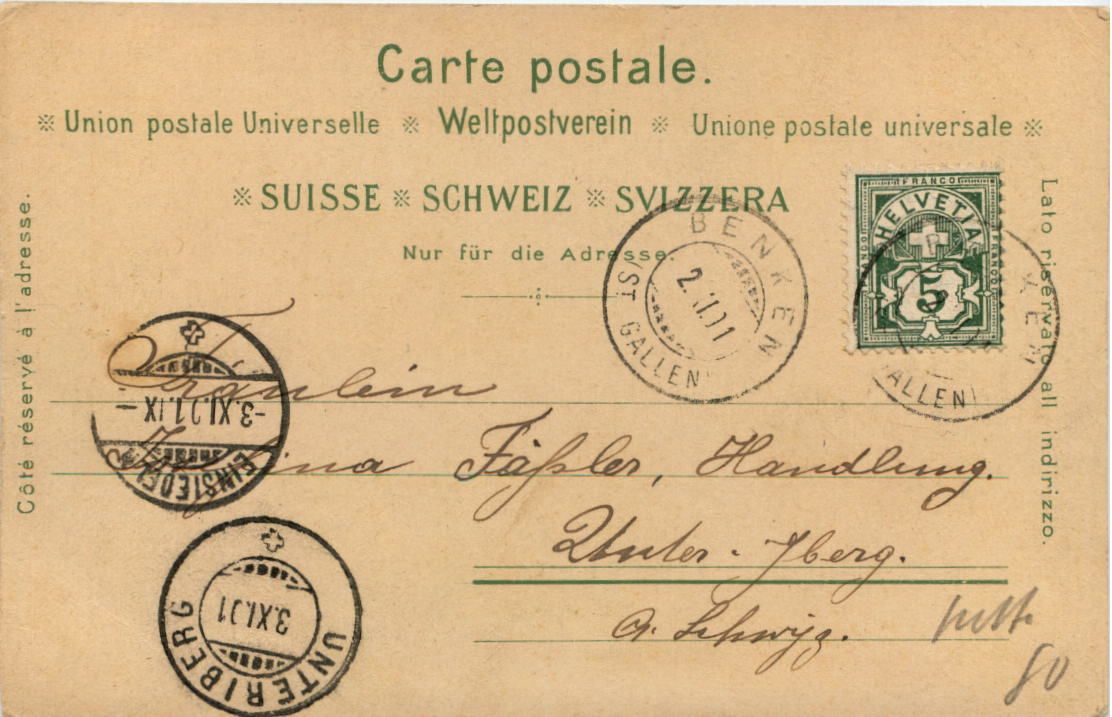 Carte postale.
※ Union postale Universelle ※ Weltpostverein ※ Unione postale universale ※
※ SUISSE ※ SCHWEIZ ※ SVIZZERA
Nur für die Adresse.
Côté réservé à l'adresse.
Lato riservato all indirizzo.
FRANCO
FRANCO
FRANCO
HELVETIA
5
BENKEN
2.XI.01
(ST GALLEN)
KEN
GALLEN)
-3.XI.01.IX-
EINSIEDELN
UNTERIBERG
3.XI.01
Fräulein
Fäßler, Handlung.
Unter-Iberg.
Schwyz.
80